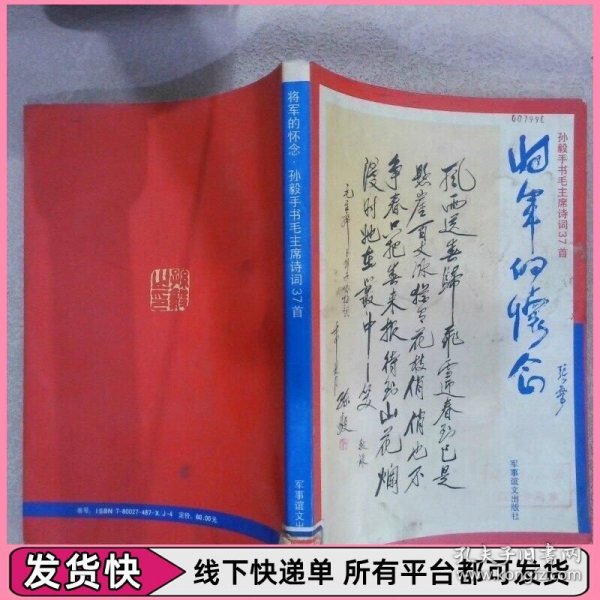 607996
孙毅手书毛主席诗词37首
将军的怀念
风雨送春归飞雪迎春到已是
悬崖百丈冰犹有花枝俏俏也不
争春只把春来报待到山花烂
漫时她在丛中笑
孙毅
敬录
军事谊文出版社
将军的怀念·孙毅手书毛主席诗词37首
军事谊文出
书号:ISBN 7-80027-487-X/J·4 定价:60.00元
孔夫子旧书网
www.kongfz.com
发货快
线下快递单 所有平台都可发货